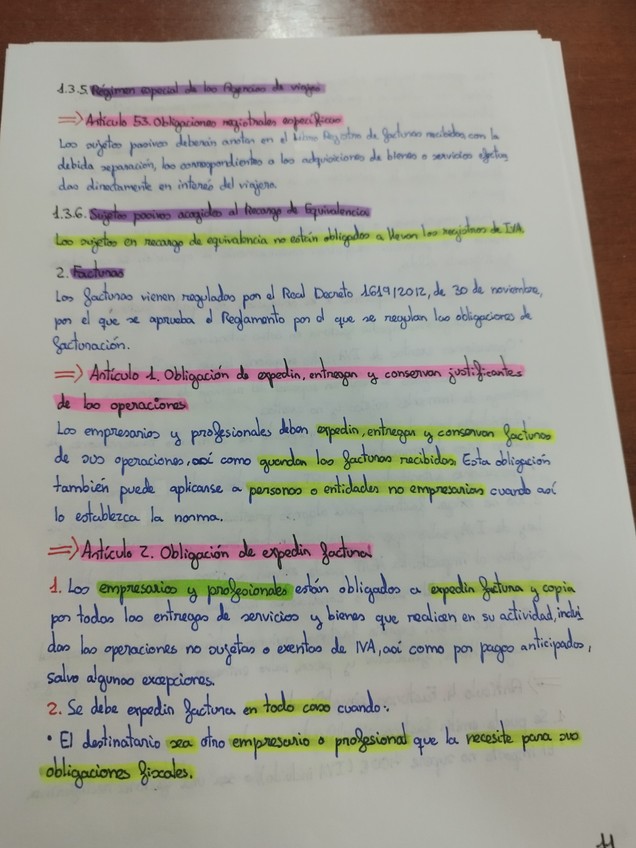 1.3.5. Régimen especial de las Agencias de viajes
=> Artículo 53. Obligaciones registrales específicas
Los sujetos pasivos deberán anotar en el Libro Registro de facturas recibidas con la
debida separación, las correspondientes a las adquisiciones de bienes o servicios efectua
das directamente en interés del viajero.
1.3.6. Sujetos pasivos acogidos al Recargo de Equivalencia
Los sujetos en recargo de equivalencia no están obligados a llevar los registros de IVA
2. Facturas
Las facturas vienen reguladas por el Real Decreto 1619/2012, de 30 de noviembre,
por el que se aprueba el Reglamento por el que se regulan las obligaciones de
facturación.
=> Artículo 1. Obligación de expedir, entregar y conservar justificantes
de las operaciones
Los empresarios y profesionales deben expedir, entregar y conservar facturas
de sus operaciones, así como guardar las facturas recibidas. Esta obligación
también puede aplicarse a personas o entidades no empresarias cuando así
lo establezca la norma.
=> Artículo 2. Obligación de expedir factura
1. Los empresarios y profesionales están obligados a expedir factura y copia
por todas las entregas de servicios y bienes que realicen en su actividad, inclui
das las operaciones no sujetas o exentas de IVA, así como por pagos anticipados,
salvo algunas excepciones.
2. Se debe expedir factura en todo caso cuando:
• El destinatario sea otro empresario o profesional que la necesite para sus
obligaciones fiscales.
11